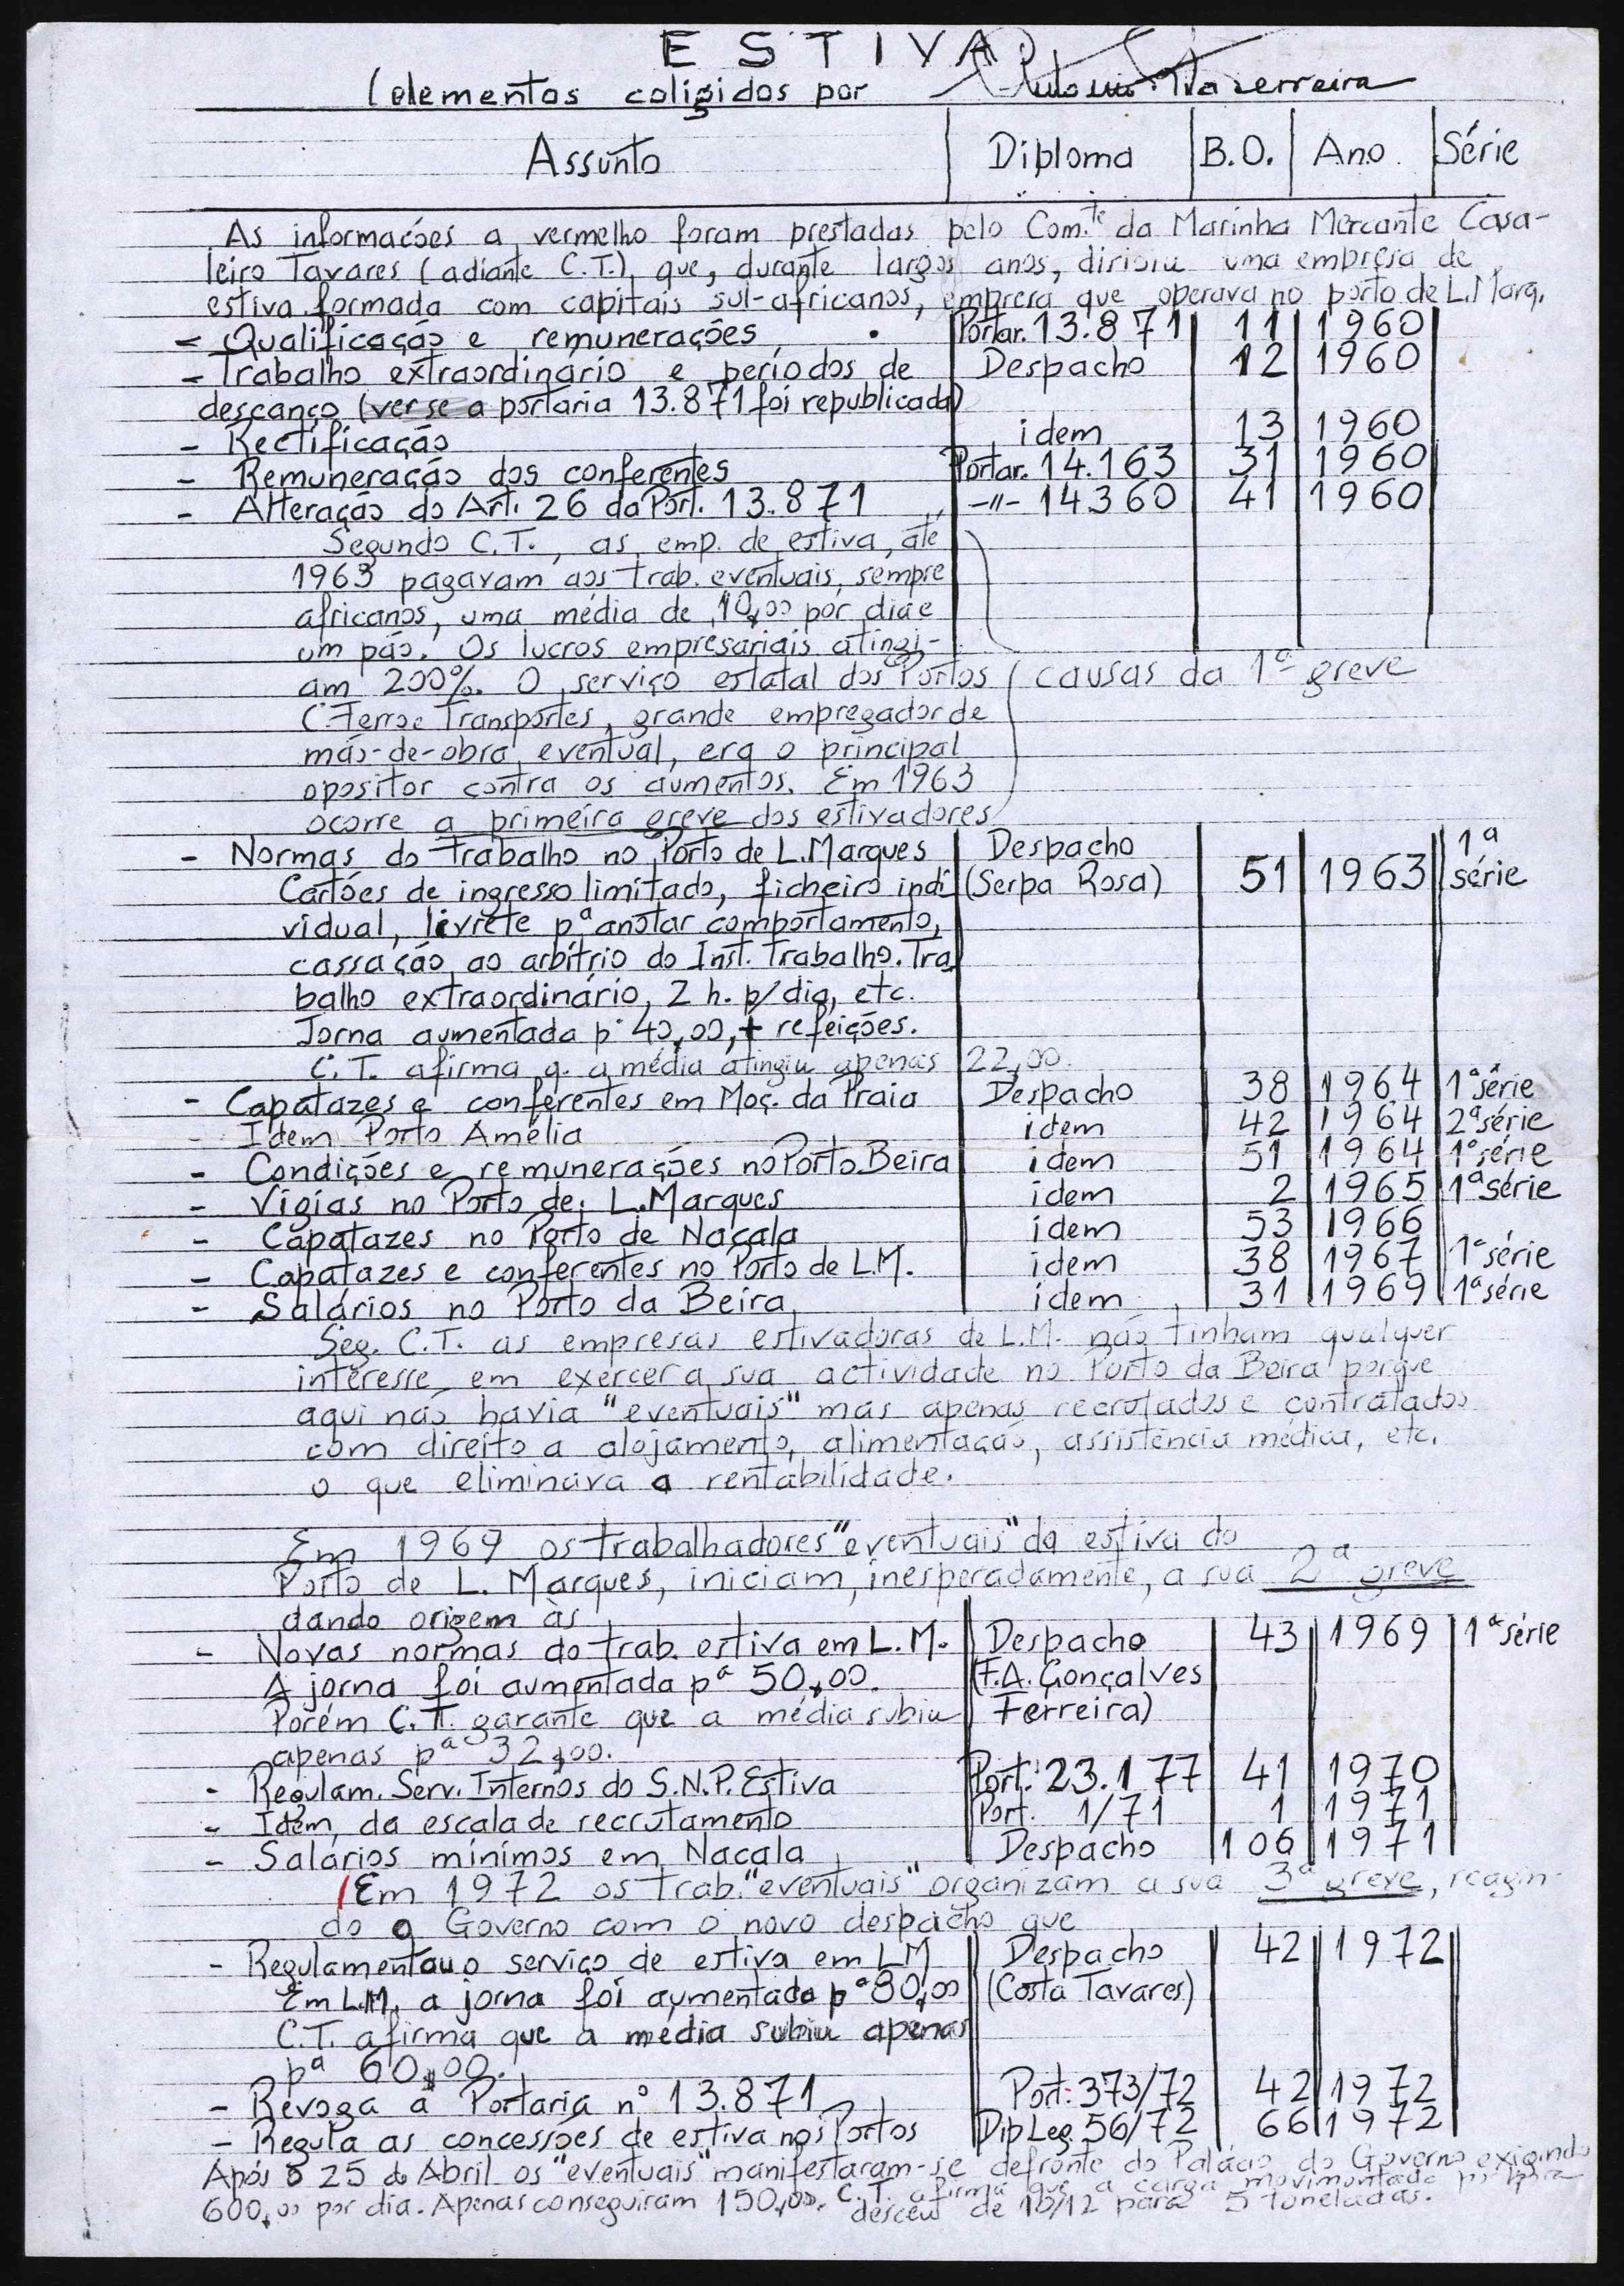 ESTIVA
(elementos coligidos por António Rita Ferreira
Assunto Diploma B.O. Ano Série
As informações a vermelho foram prestadas pelo Com.te da Marinha Mercante Casa-
leiro Tavares (adiante C.T.), que, durante largos anos, dirigiu uma empresa de
estiva formada com capitais sul-africanos, empresa que operava no porto de L. Marq.
- Qualificação e remunerações Portar. 13.871 11 1960
- Trabalho extraordinário e períodos de Despacho 12 1960
descanço (ver se a portaria 13.871 foi republicada)
- Rectificação idem 13 1960
- Remuneração dos conferentes Portar. 14.163 31 1960
- Alteração do Art. 26 da Port. 13.871 -"- 14360 41 1960
Segundo C.T., as emp. de estiva, até
1963 pagavam aos trab. eventuais, sempre
africanos, uma média de 10$00 por dia e
um pão. Os lucros empresariais atingi-
am 200%. O serviço estatal dos Portos causas da 1ª greve
C. Ferro e Transportes, grande empregador de
mão-de-obra eventual, era o principal
opositor contra os aumentos. Em 1963
ocorre a primeira greve dos estivadores
- Normas do Trabalho no Porto de L. Marques Despacho 1ª
Cartões de ingresso limitado, ficheiro indi (Serpa Rosa) 51 1963 série
vidual, livrete pª anotar comportamento,
cassação ao arbítrio do Inst. Trabalho. Tra
balho extraordinário, 2 h. p/dia, etc.
Jorna aumentada pª 40,00, + refeições.
C.T. afirma q. a média atingiu apenas 22,00.
- Capatazes e conferentes em Moç. da Praia Despacho 38 1964 1ª série
- Idem Porto Amélia idem 42 1964 2ª série
- Condições e remunerações no Porto Beira idem 51 1964 1ª série
- Vigias no Porto de L. Marques idem 2 1965 1ª série
- Capatazes no Porto de Nacala idem 53 1966
- Capatazes e conferentes no Porto de L.M. idem 38 1967 1ª série
- Salários no Porto da Beira idem 31 1969 1ª série
Seg. C.T. as empresas estivadoras de L.M. não tinham qualquer
interesse em exercer a sua actividade no Porto da Beira porque
aqui não havia "eventuais" mas apenas recrutados e contratados
com direito a alojamento, alimentação, assistência médica, etc.
o que eliminava a rentabilidade.
Em 1969 os trabalhadores "eventuais" da estiva do
Porto de L. Marques, iniciam, inesperadamente, a sua 2ª greve
dando origem às
- Novas normas do trab. estiva em L.M. Despacho 43 1969 1ª série
A jorna foi aumentada pª 50$00. (F.A. Gonçalves
Porém C.T. garante que a média subiu Ferreira)
apenas pª 32$00.
- Regulam. Serv. Internos do S.N.P. Estiva Port. 23.177 41 1970
- Idem, da escala de recrutamento Port. 1/71 1 1971
- Salários mínimos em Nacala Despacho 106 1971
Em 1972 os trab. "eventuais" organizam a sua 3ª greve, reagin-
do o Governo com o novo despacho que
- Regulamentou o serviço de estiva em LM Despacho 42 1972
Em L.M. a jorna foi aumentada pª 80$00 (Costa Tavares)
C.T. afirma que a média subiu apenas
pª 60$00.
- Revoga a Portaria nº 13.871 Port. 373/72 42 1972
- Regula as concessões de estiva nos Portos Dip Leg. 56/72 66 1972
Após o 25 de Abril os "eventuais" manifestaram-se defronte do Palácio do Governo exigindo
600$00 por dia. Apenas conseguiram 150$00. C.T. afirma que a carga movimentada por hora
desceu de 10/12 para 5 toneladas.